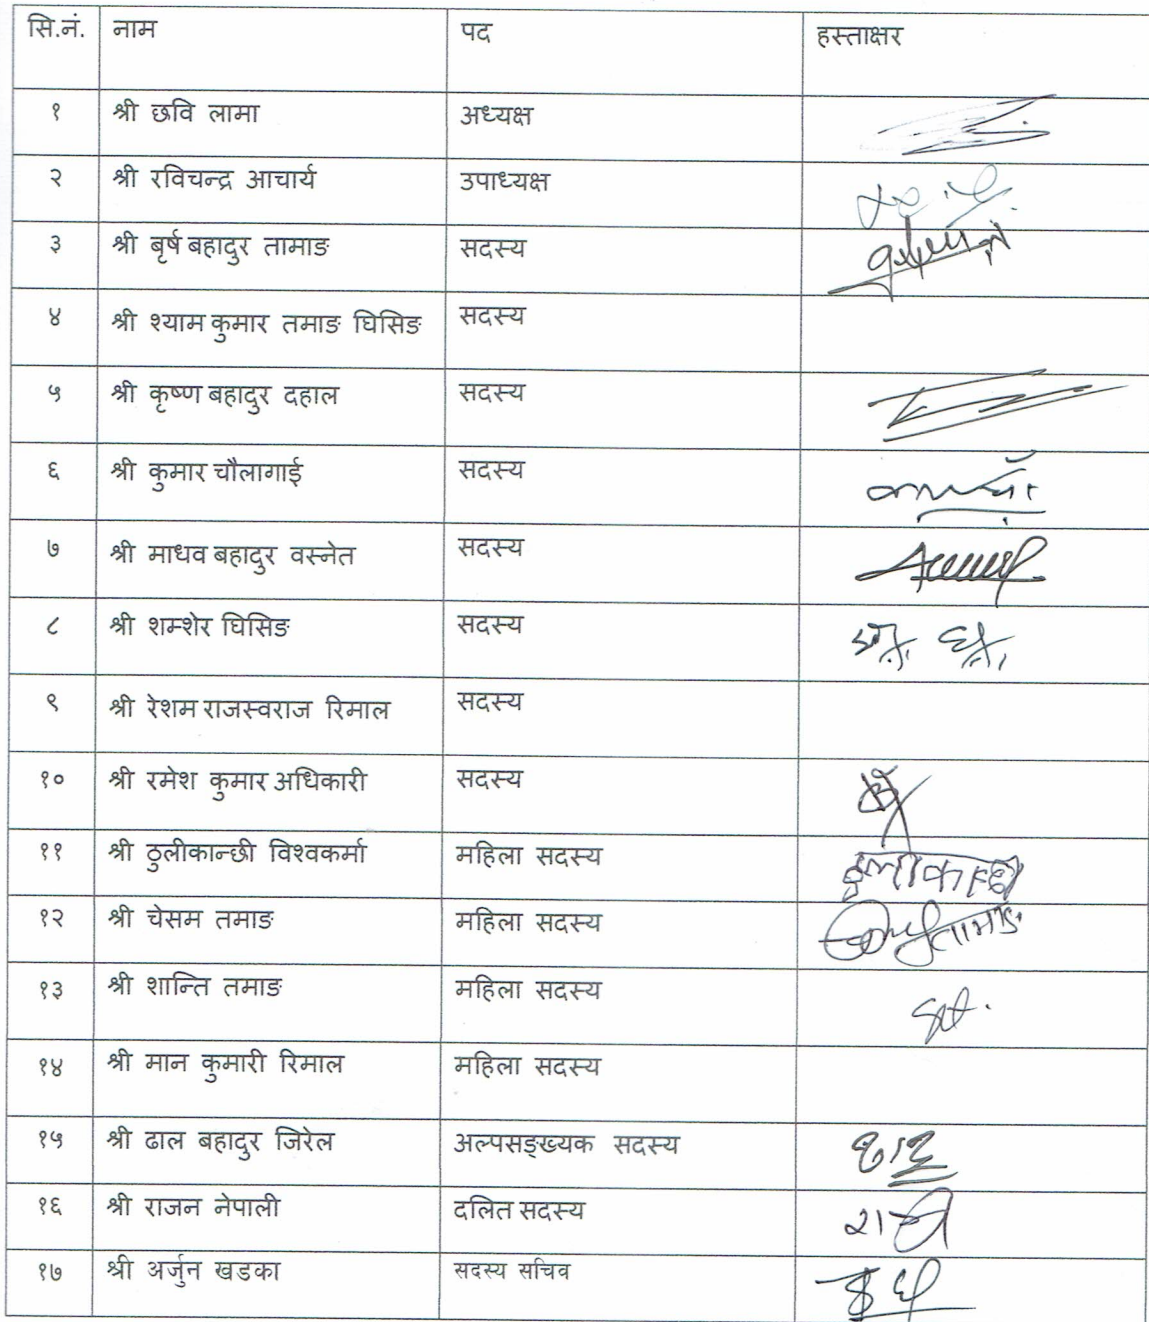 सि.नं. नाम पद हस्ताक्षर
१ श्री छवि लामा अध्यक्ष
२ श्री रविचन्द्र आचार्य उपाध्यक्ष
३ श्री बृर्ष बहादुर तामाङ सदस्य
४ श्री श्याम कुमार तमाङ घिसिङ सदस्य
५ श्री कृष्ण बहादुर दहाल सदस्य
६ श्री कुमार चौलागाई सदस्य
७ श्री माधव बहादुर वस्नेत सदस्य
८ श्री शम्शेर घिसिङ सदस्य
९ श्री रेशम राजस्वराज रिमाल सदस्य
१० श्री रमेश कुमार अधिकारी सदस्य
११ श्री ठुलीकान्छी विश्वकर्मा महिला सदस्य
१२ श्री चेसम तमाङ महिला सदस्य
१३ श्री शान्ति तमाङ महिला सदस्य
१४ श्री मान कुमारी रिमाल महिला सदस्य
१५ श्री ढाल बहादुर जिरेल अल्पसङ्ख्यक सदस्य
१६ श्री राजन नेपाली दलित सदस्य
१७ श्री अर्जुन खडका सदस्य सचिव